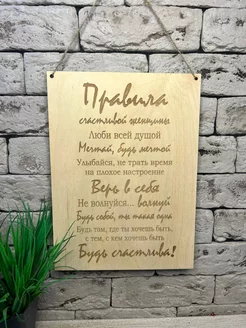 Правила
счастливой женщины
Люби всей душой
Мечтай, будь мечтой
Улыбайся, не трать время
на плохое настроение
Верь в себя
Не волнуйся... волнуй
Будь собой, ты такая одна
Будь там, где ты хочешь быть,
с тем, с кем хочешь быть
Будь счастлива!